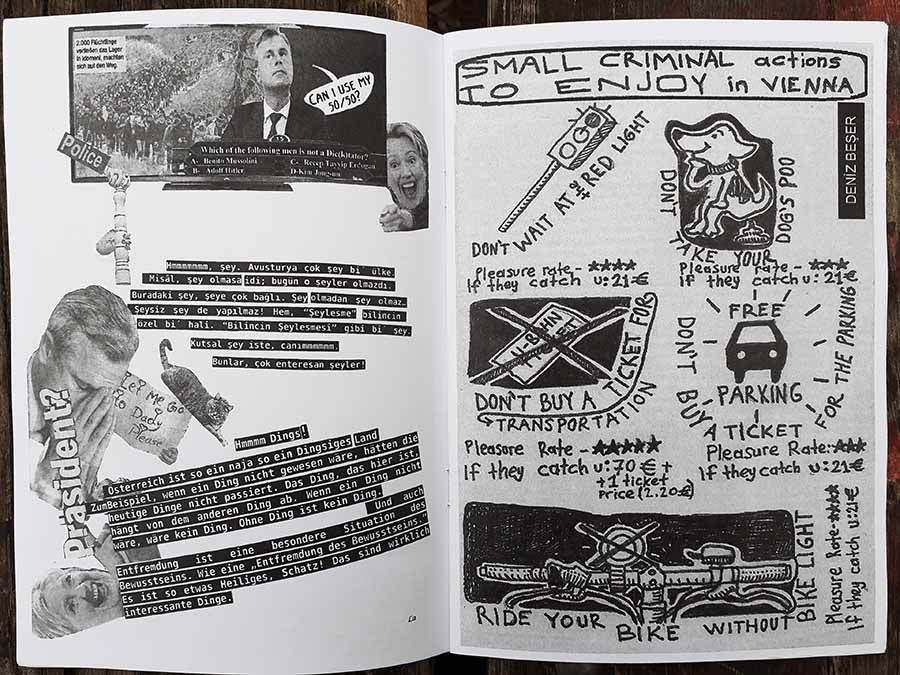 2.000 Flüchtlinge
verließen das Lager
in Idomeni, machten
sich auf den Weg.
CAN I USE MY
50/50?
15
Which of the following men is not a Dic(k)tator?
A- Benito Mussolini
C- Recep Tayyip Erdogan
B- Adolf Hitler
D-Kim Jong-un
Police
Hmmmmmmm, şey. Avusturya çok şey bi´ ülke.
Misâl, şey olmasaidi; bugün o şeyler olmazdı.
Buradaki şey, şeye çok bağlı. Şey olmadan şey olmaz.
Şeysiz şey de yapılmaz! Hem, “Şeyleşme” bilincin
özel bi´ hali. “Bilincin Şeyleşmesi” gibi bi´ şey.
Kutsal şey işte, canımmmmmm.
Bunlar, çok enteresan şeyler!
Let Me Go
to Dady
Please
Präsident?
Hmmmm Dings!
Österreich ist so ein naja so ein Dingsiges Land
ZumBeispiel, wenn ein Ding nicht gewesen wäre, hätten die
heutige Dinge nicht passiert. Das Ding, das hier ist,
hängt von dem anderen Ding ab. Wenn ein Ding nicht
wäre, wäre kein Ding. Ohne Ding ist kein Ding.
Und auch
Entfremdung ist eine besondere Situation des
Bewusstseins. Wie eine „Entfremdung des Bewusstseins.
Es ist so etwas Heiliges, Schatz! Das sind wirklich
interessante Dinge.
La
SMALL CRIMINAL actions
TO ENJOY in VIENNA
DENİZ BEŞER
DON'T WAIT AT RED LIGHT
Pleasure rate - ★★★★
If they catch u: 21-€
DON'T TAKE YOUR DOG'S POO
Pleasure rate - ★★★
If they catch u: 21-€
U-BAHN
TICKET
DON'T BUY A TICKET FOR
TRANSPORTATION
Pleasure Rate - ★★★★★
If they catch u: 70 € +
+1 ticket
price (2.20€)
FREE
PARKING
DON'T BUY A TICKET FOR THE PARKING!
Pleasure Rate: ★★★
If they catch u: 21€
RIDE YOUR BIKE WITHOUT BIKE LIGHT
Pleasure Rate - ★★★★
If they catch u: 21€